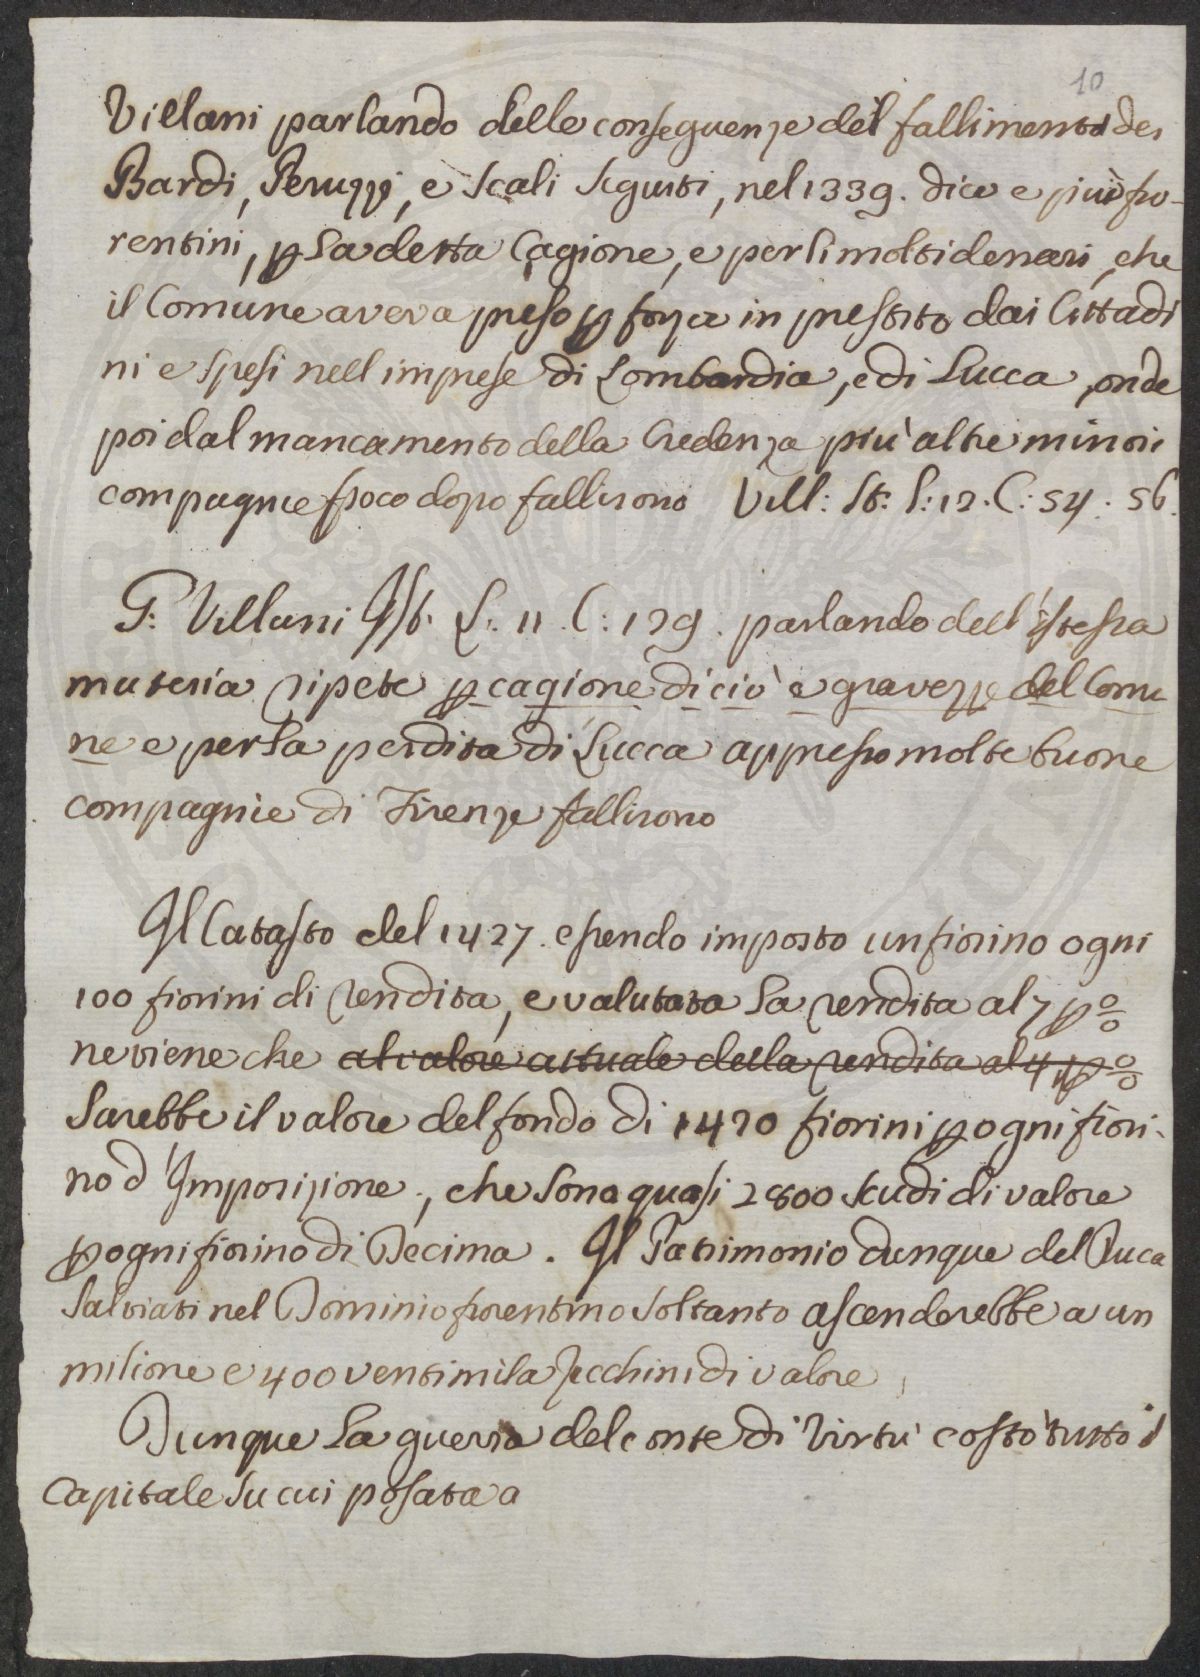 10
Villani parlando delle conseguenze del fallimento dei
Bardi, Peruzzi, e Scali seguiti, nel 1339. dice e più fio-
rentini, p la detta Cagione, e per li molti denari, che
il Comune aveva preso p forza in prestito dai Cittadi
ni e spesi nell imprese di Lombardia, e di Lucca, onde
poi dal mancamento della Credenza più altre minori
compagnie poco dopo fallirono Vill: St: L: 12. C: 54. 56.
G: Villani Ist. L: 11 C: 129. parlando dell'istessa
materia ripete p cagione di ciò e gravezze del Comu
ne e per la perdita di Lucca appresso molte buone
compagnie di Firenze fallirono
Il Catasto del 1427. essendo imposto un fiorino ogni
100 fiorini di rendita, e valutata la rendita al 7 p %
ne viene che al valore attuale della rendita al 4 p %
Sarebbe il valore del fondo di 1420 fiorini p ogni fiori-
no d'Imposizione, che sono quasi 2800 scudi di valore
p ogni fiorino di Decima. Il Patrimonio dunque del Duca
Salviati nel Dominio fiorentino soltanto ascenderebbe a un
milione e 400 ventimila Zecchini di valore
Dunque la guerra del conte di Virtù costò tutto il
Capitale su cui posata a